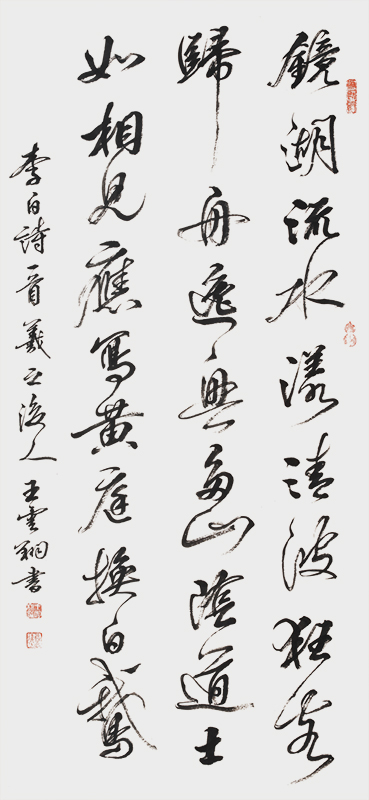 鏡湖流水漾清波狂客
歸舟逸興多山陰道士
如相見應寫黃庭換白鵝
李白詩一首羲之後人王雲翔書